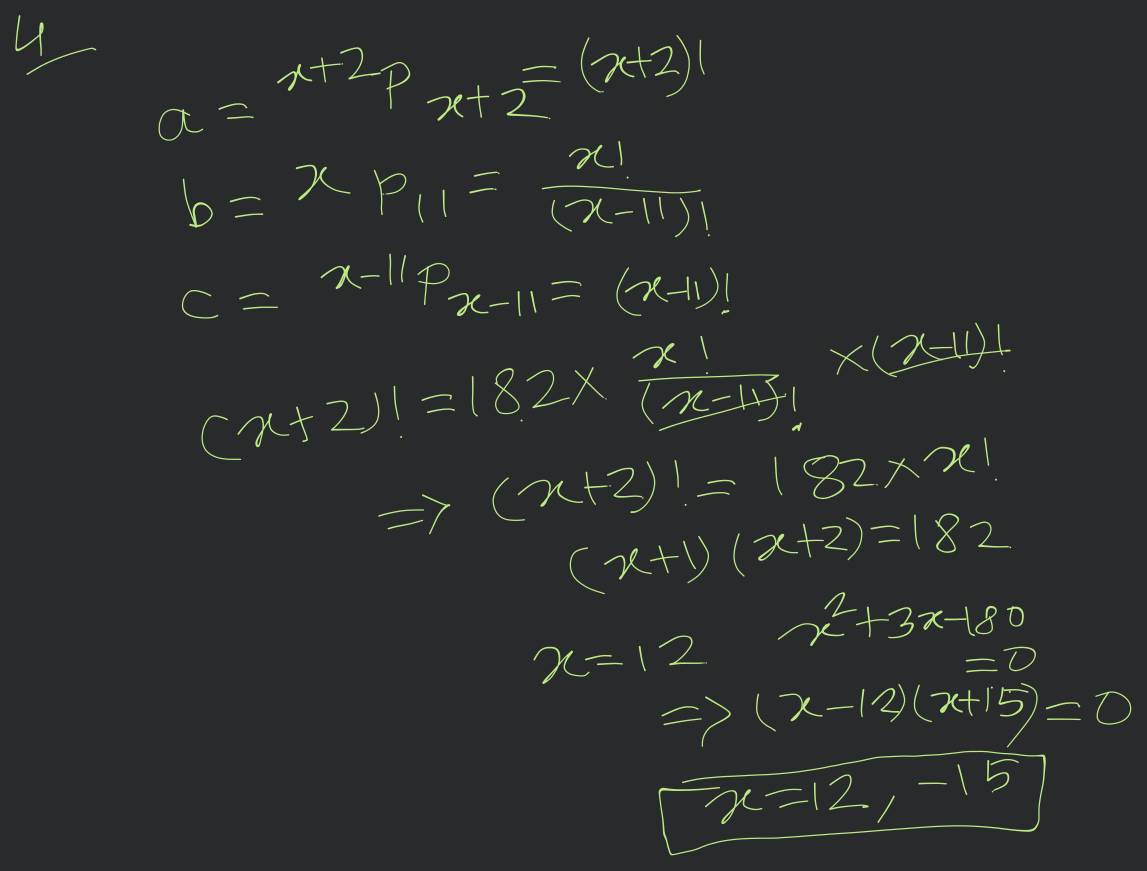 4
a = x+2 P x+2 = (x+2)!
b = x P 11 = x! / (x-11)!
c = x-11 P x-11 = (x-11)!
(x+2)! = 182 × x! / (x-11)! × (x-11)!
⇒ (x+2)! = 182 × x!
(x+1) (x+2) = 182
x² + 3x - 180
x = 12
= 0
⇒ (x-12) (x+15) = 0
x = 12, -15